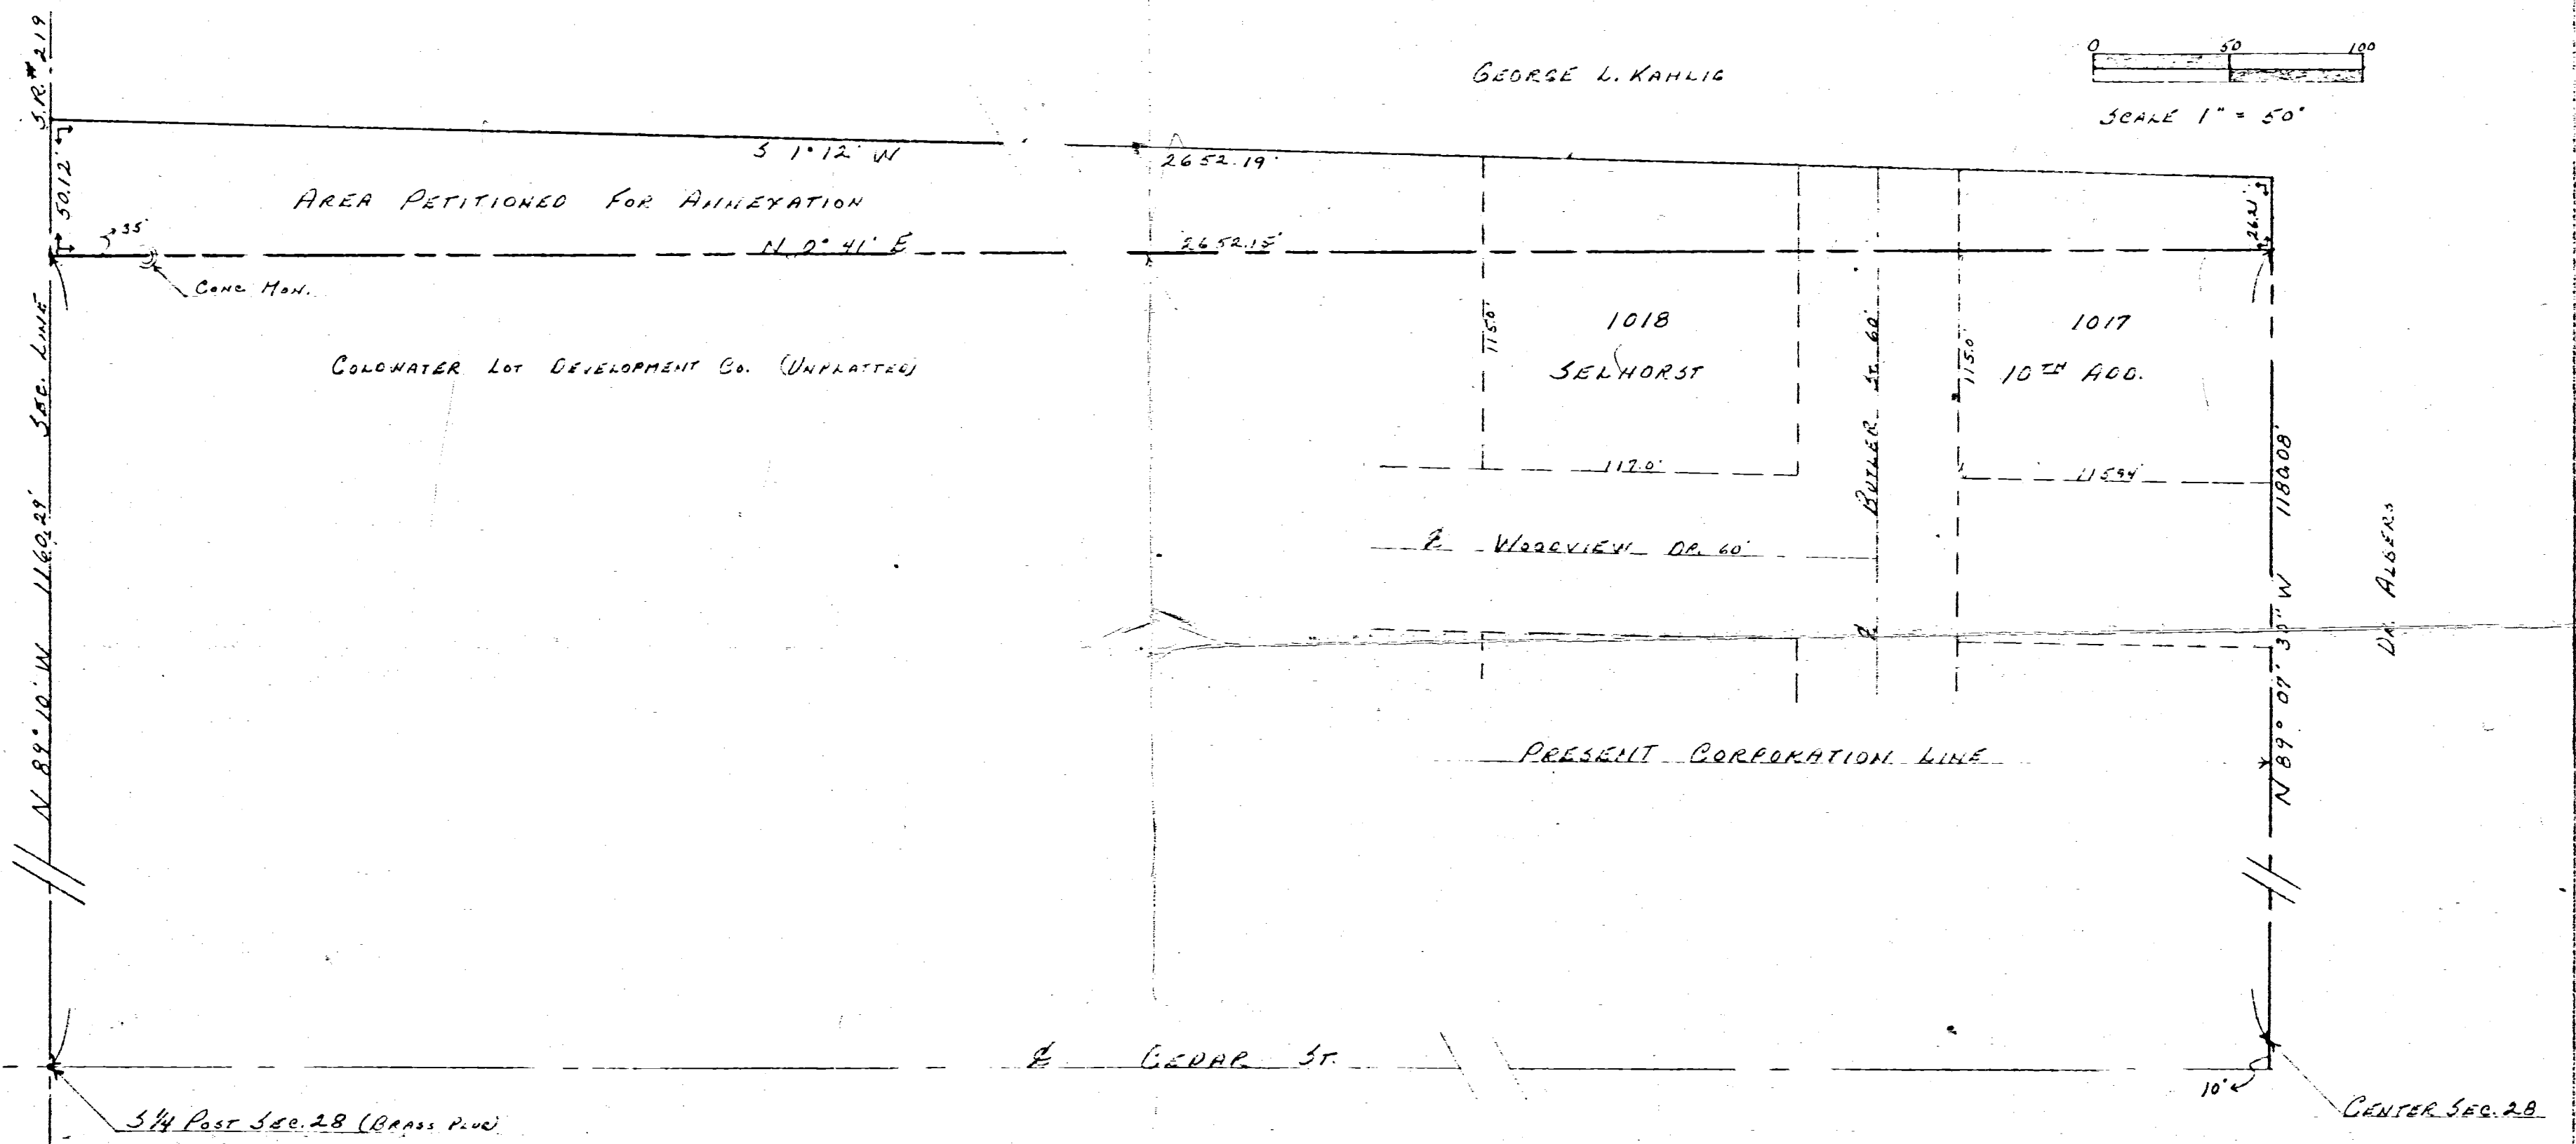 S.R.# 219
GEORGE L. KAHLIG
0 50 100
SCALE 1" = 50'
S 1° 12' W
2652.19'
50.12'
AREA PETITIONED FOR ANNEXATION
26.21'
35'
N 0° 41' E
2652.15'
CONC MON.
SEC. LINE
1160.29'
N 89° 10' W
COLDWATER LOT DEVELOPMENT CO. (UNPLATTED)
115.0'
1018
SELHORST
117.0'
BUTLER ST. 60'
115.0'
1017
10TH ADD.
115.94'
1180.08'
N 89° 07' 35" W
DR. ALBERS
℄ WOODVIEW DR. 60'
℄
PRESENT CORPORATION LINE
℄ CEDAR ST.
10'
S 1/4 POST SEC. 28 (BRASS PLUG)
CENTER SEC. 28